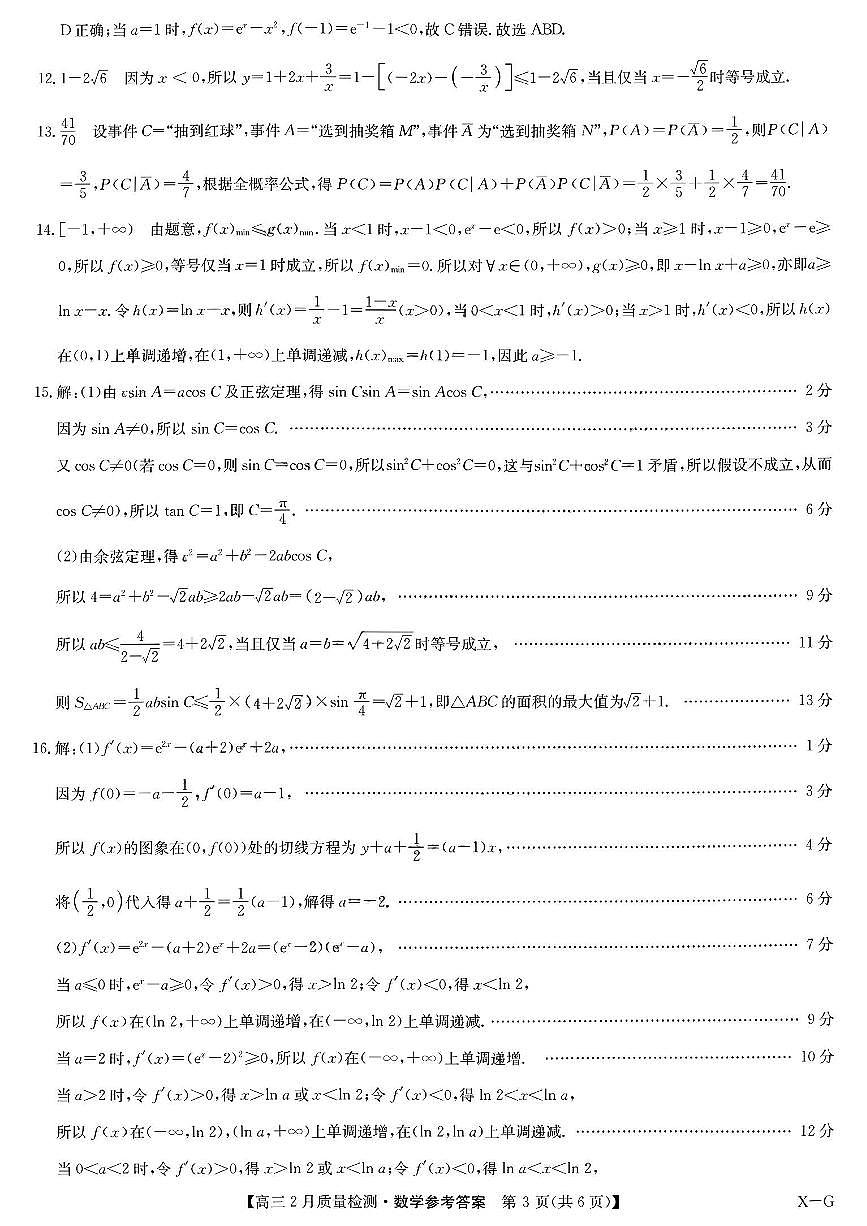 D正确;当a=1时,f(x)=eˣ-x²,f(-1)=e⁻¹-1<0,故C错误.故选ABD.
12. 1-2√6 因为x<0,所以y=1+2x+3/x=1-[(-2x)-(-3/x)]≤1-2√6,当且仅当x=-√6/2时等号成立.
13. 41/70 设事件C=“抽到红球”,事件A=“选到抽奖箱M”,事件A̅为“选到抽奖箱N”,P(A)=P(A̅)=1/2,则P(C|A)
=3/5,P(C|A̅)=4/7,根据全概率公式,得P(C)=P(A)P(C|A)+P(A̅)P(C|A̅)=1/2×3/5+1/2×4/7=41/70.
14. [-1,+∞) 由题意,f(x)min≤g(x)min.当x<1时,x-1<0,eˣ-e<0,所以f(x)>0;当x≥1时,x-1≥0,eˣ-e≥
0,所以f(x)≥0,等号仅当x=1时成立,所以f(x)min=0.所以对∀x∈(0,+∞),g(x)≥0,即x-ln x+a≥0,亦即a≥
ln x-x.令h(x)=ln x-x,则h′(x)=1/x-1=(1-x)/x(x>0),当0<x<1时,h′(x)>0;当x>1时,h′(x)<0,所以h(x)
在(0,1)上单调递增,在(1,+∞)上单调递减,h(x)max=h(1)=-1,因此a≥-1.
15. 解:(1)由csin A=acos C及正弦定理,得sin Csin A=sin Acos C,…… 2分
因为sin A≠0,所以sin C=cos C. …… 3分
又cos C≠0(若cos C=0,则sin C=cos C=0,所以sin²C+cos²C=0,这与sin²C+cos²C=1矛盾,所以假设不成立,从而
cos C≠0),所以tan C=1,即C=π/4. …… 6分
(2)由余弦定理,得c²=a²+b²-2abcos C,
所以4=a²+b²-√2ab≥2ab-√2ab=(2-√2)ab, …… 9分
所以ab≤4/(2-√2)=4+2√2,当且仅当a=b=√(4+2√2)时等号成立, …… 11分
则S△ABC=1/2absin C≤1/2×(4+2√2)×sin π/4=√2+1,即△ABC的面积的最大值为√2+1. …… 13分
16. 解:(1)f′(x)=e²ˣ-(a+2)eˣ+2a,…… 1分
因为f(0)=-a-1/2,f′(0)=a-1, …… 3分
所以f(x)的图象在(0,f(0))处的切线方程为y+a+1/2=(a-1)x,…… 4分
将(1/2,0)代入得a+1/2=1/2(a-1),解得a=-2. …… 6分
(2)f′(x)=e²ˣ-(a+2)eˣ+2a=(eˣ-2)(eˣ-a), …… 7分
当a≤0时,eˣ-a≥0,令f′(x)>0,得x>ln 2;令f′(x)<0,得x<ln 2,
所以f(x)在(ln 2,+∞)上单调递增,在(-∞,ln 2)上单调递减. …… 9分
当a=2时,f′(x)=(eˣ-2)²≥0,所以f(x)在(-∞,+∞)上单调递增. …… 10分
当a>2时,令f′(x)>0,得x>ln a或x<ln 2;令f′(x)<0,得ln 2<x<ln a,
所以f(x)在(-∞,ln 2),(ln a,+∞)上单调递增,在(ln 2,ln a)上单调递减. …… 12分
当0<a<2时,令f′(x)>0,得x>ln 2或x<ln a;令f′(x)<0,得ln a<x<ln 2,
【高三2月质量检测·数学参考答案 第3页(共6页)】 X-G